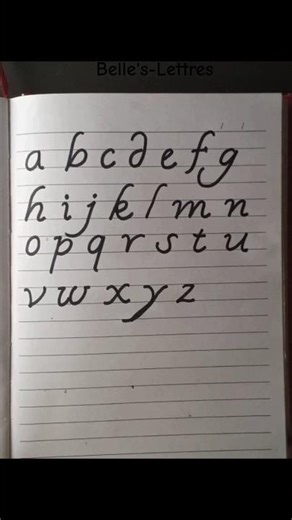 Belle's-Lettres
a b c d e f g
h i j k l m n
o p q r s t u
v w x y z